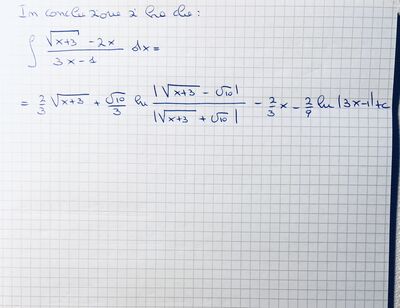 In conclusione si ha che:
∫ (√(x+3) - 2x)/(3x-1) dx =
= 2/3 √(x+3) + √10/3 ln |√(x+3) - √10|/|√(x+3) + √10| - 2/3 x - 2/9 ln |3x-1| + c